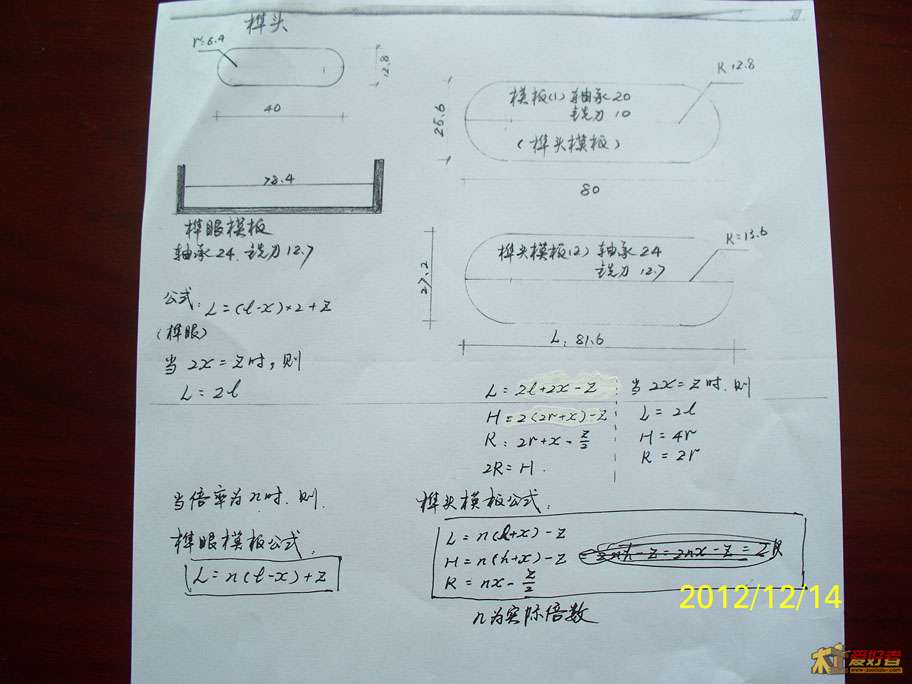 榫头
r=6.4
12.8
40
78.4
榫眼模板
轴承24 铣刀12.7
公式: L=(l-x)×2+Z
(榫眼)
当 2x=Z时,则
L=2l
R12.8
模板(1) 轴承20
铣刀10
(榫头模板)
25.6
80
R=13.6
榫头模板(2) 轴承24
铣刀12.7
27.2
L: 81.6
L=2l+2x-Z
H=2(2r+x)-Z
R: 2r+x-Z/2
2R=H.
当2x=Z时.则
L=2l
H=4r
R=2r
当倍率为n时.则.
榫眼模板公式:
L=n(l-x)+Z
榫头模板公式:
L=n(l+x)-Z
H=n(h+x)-Z
R=nx-Z/2
n为实际倍数
2012/12/14
木工爱好者